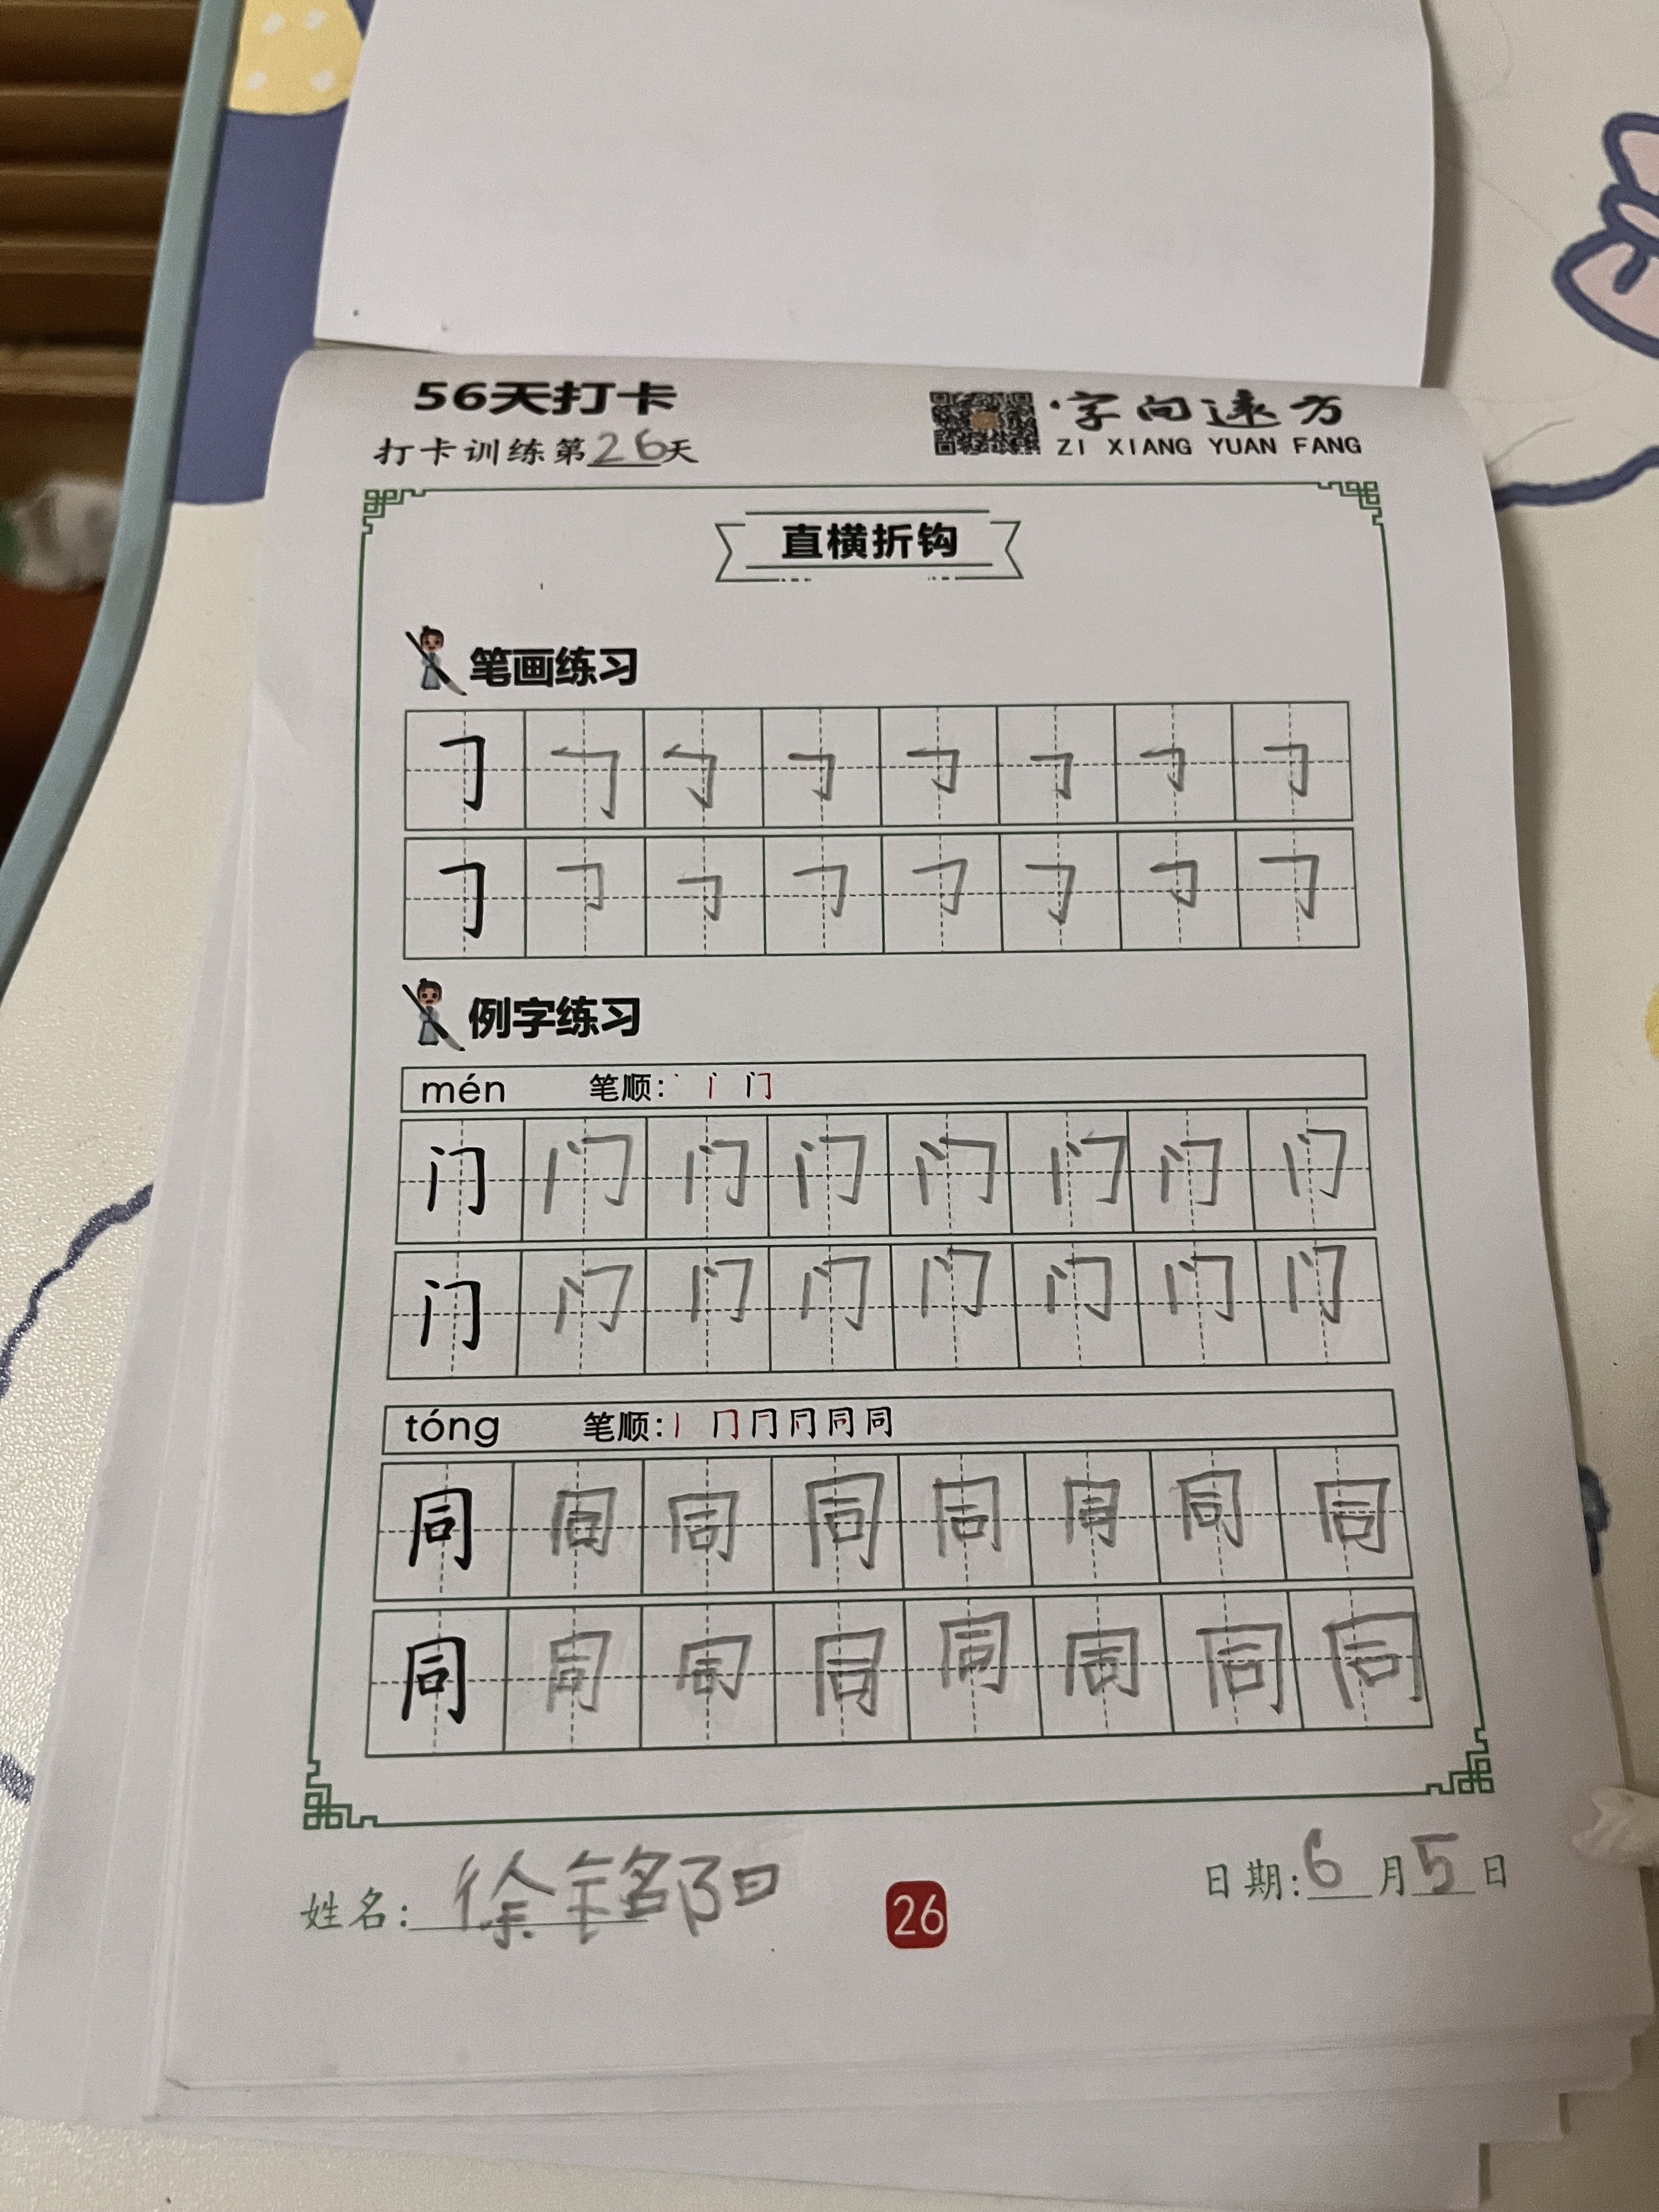 56天打卡
打卡训练第26天
字向远方
ZI XIANG YUAN FANG
直横折钩
笔画练习
㇆ ㇆ ㇆ ㇆ ㇆ ㇆ ㇆ ㇆
㇆ ㇆ ㇆ ㇆ ㇆ ㇆ ㇆ ㇆
例字练习
mén 笔顺: 丶 门
门 门 门 门 门 门 门 门
门 门 门 门 门 门 门 门
tóng 笔顺: 丨 冂 同
同 同 同 同 同 同 同 同
同 同 同 同 同 同 同 同
姓名: 徐铭阳
26
日期: 6月5日